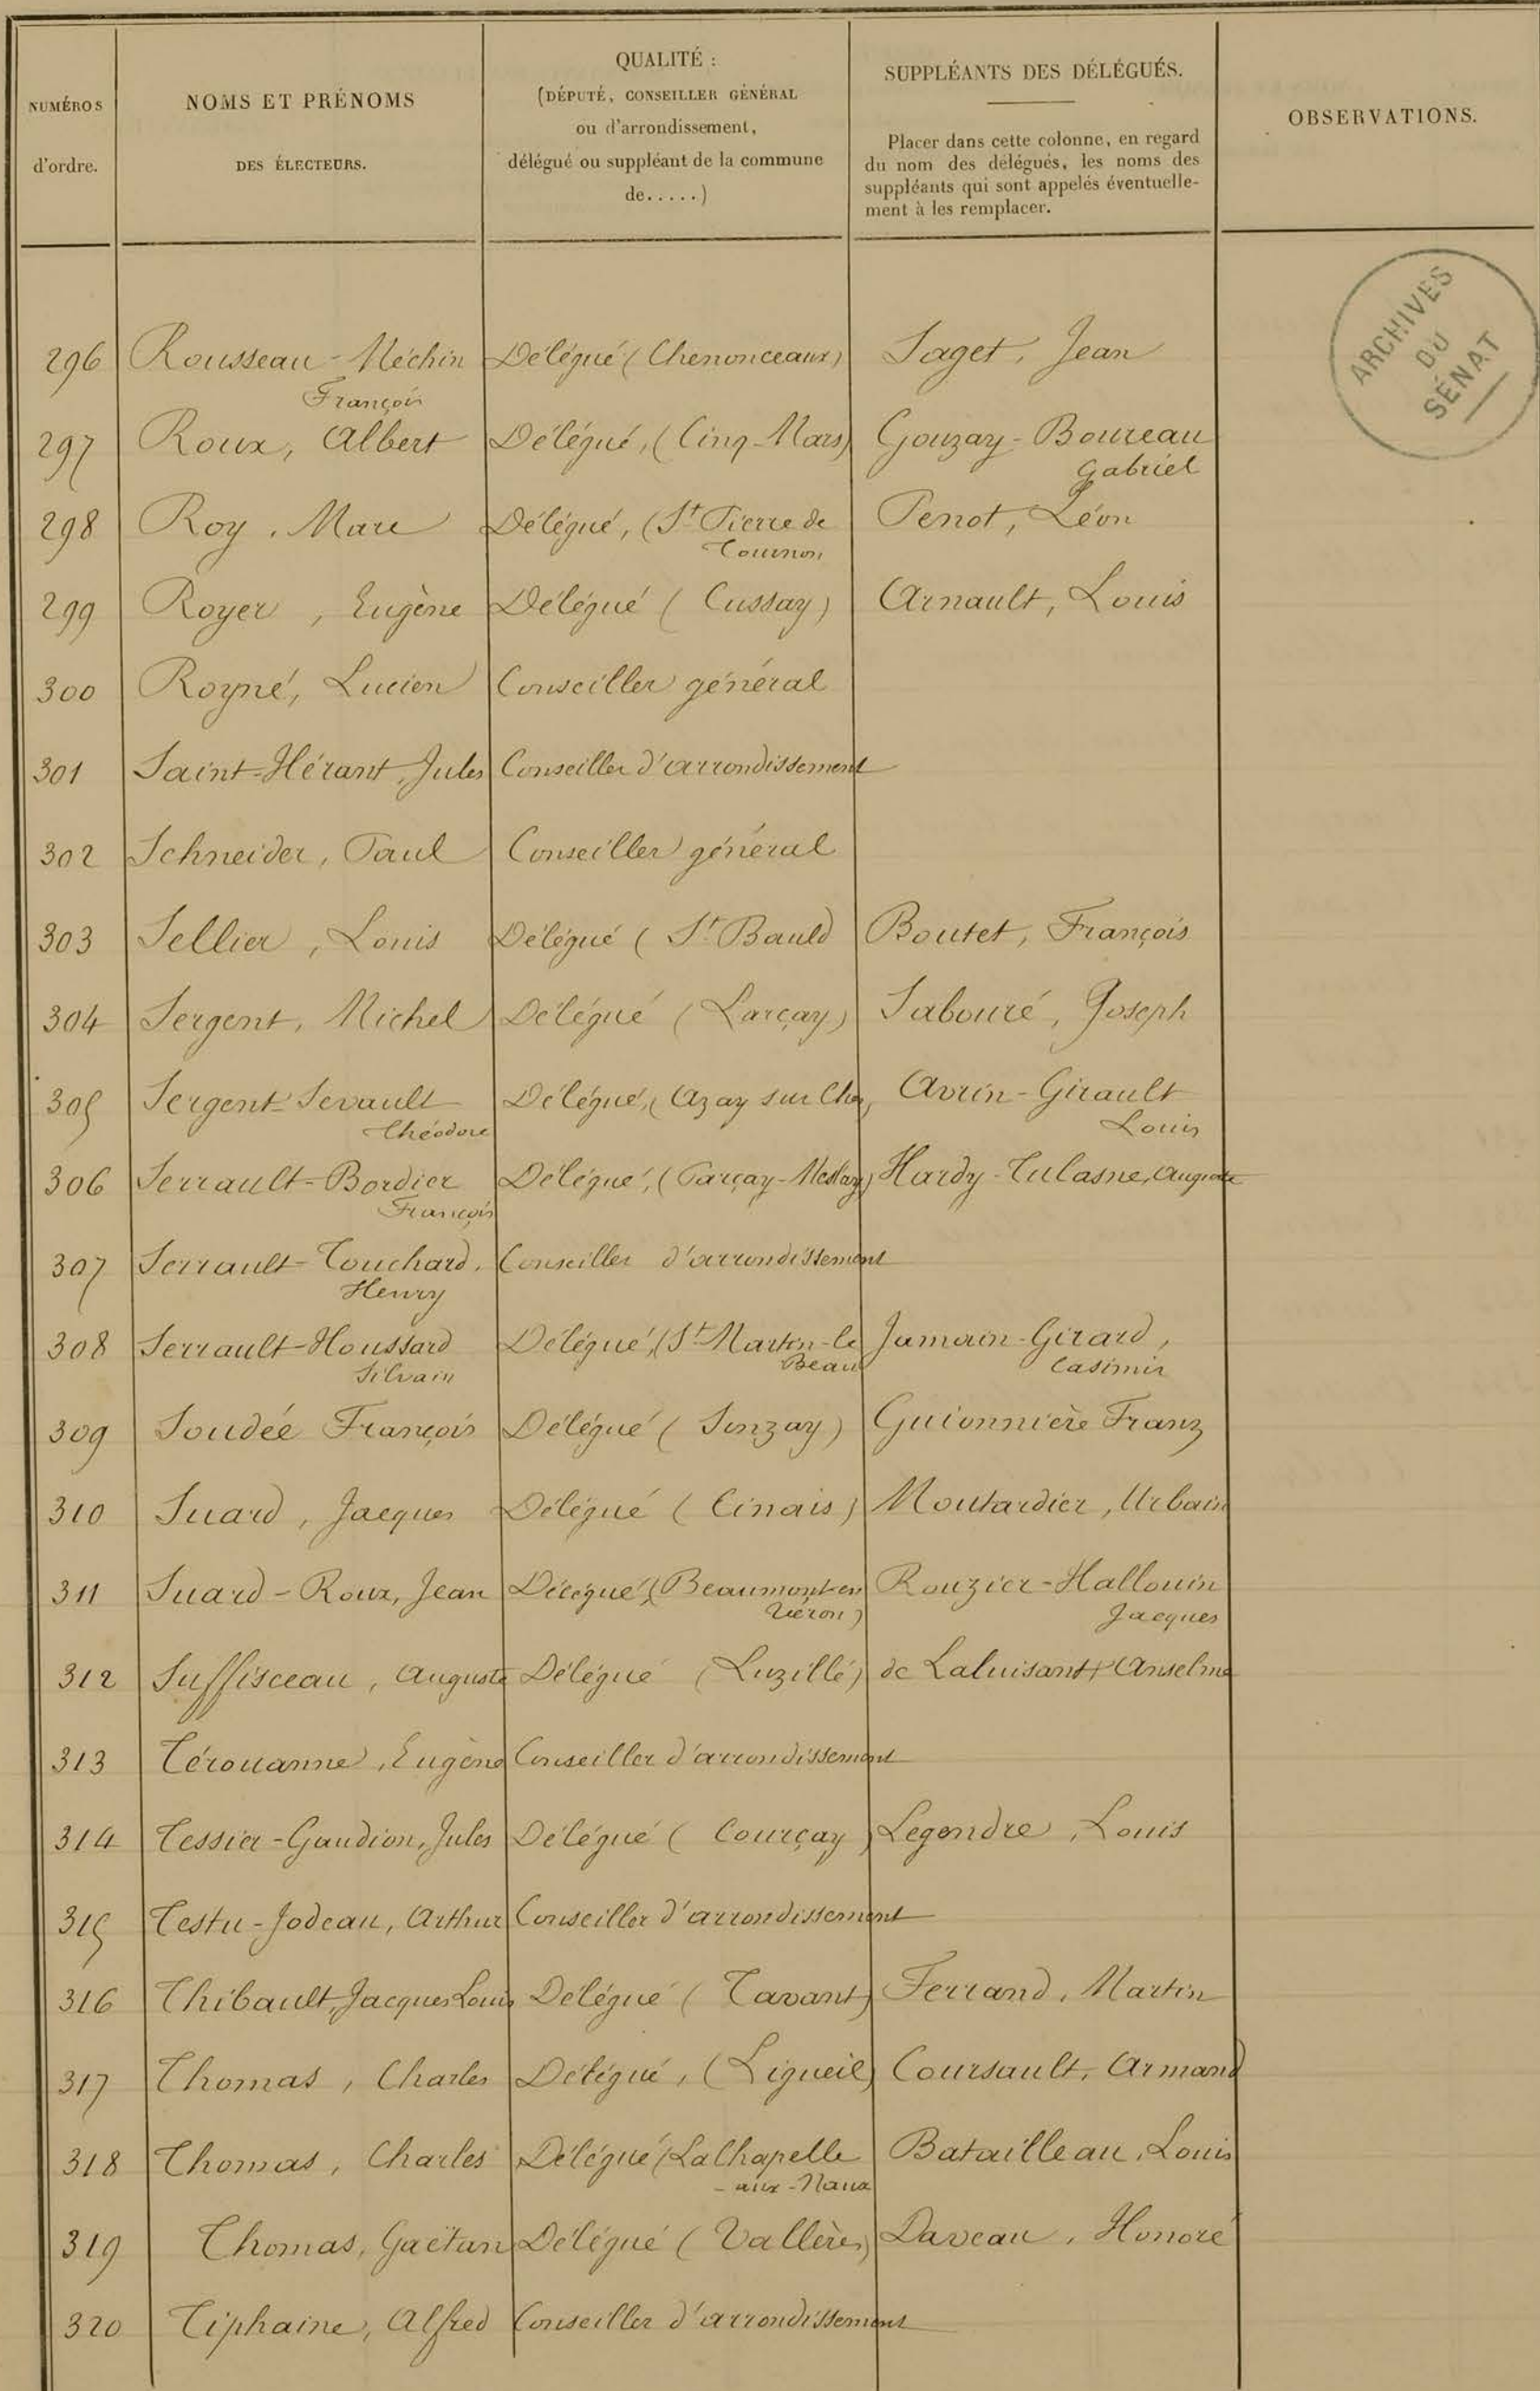 NUMÉROS
d'ordre.
NOMS ET PRÉNOMS
DES ÉLECTEURS.
QUALITÉ :
(DÉPUTÉ, CONSEILLER GÉNÉRAL
ou d'arrondissement,
délégué ou suppléant de la commune
de.....)
SUPPLÉANTS DES DÉLÉGUÉS.
Placer dans cette colonne, en regard
du nom des délégués, les noms des
suppléants qui sont appelés éventuelle-
ment à les remplacer.
OBSERVATIONS.
ARCHIVES
DU
SÉNAT
296 Rousseau-Méchin Délégué (Chenonceaux) Saget, Jean
François
297 Roux, Albert Délégué, (Cinq-Mars) Gouzay-Boureau
Gabriel
298 Roy, Marc Délégué, (St Pierre de Penot, Léon
Tournon
299 Royer, Eugène Délégué (Cussay) Arnault, Louis
300 Royné, Lucien Conseiller général
301 Saint-Hérant, Jules Conseiller d'arrondissement
302 Schneider, Paul Conseiller général
303 Sellier, Louis Délégué (St Bauld Boutet, François
304 Sergent, Michel Délégué (Larçay) Sabouré, Joseph
305 Sergent-Sevault Délégué, (Azay sur Cher, Avrin-Girault
Théodore Louis
306 Serrault-Bordier Délégué, (Parçay-Meslay) Hardy-Tulasne, Auguste
François
307 Serrault-Touchard, Conseiller d'arrondissement
Henry
308 Serrault-Houssard Délégué, (St Martin-le Jamain-Girard,
Silvain Beau Casimir
309 Soudée François Délégué (Sonzay) Guionnière Franz
310 Suard, Jacques Délégué (Cinais) Moutardier, Urbain
311 Suard-Roux, Jean Délégué, (Beaumont-en Rouzier-Hallouin
Véron) Jacques
312 Suffisceau, Auguste Délégué (Luzillé) de Laluisant Anselme
313 Térouanne, Eugène Conseiller d'arrondissement
314 Tessier-Gaudion, Jules Délégué (Courçay) Legendre, Louis
315 Testu-Jodeau, Arthur Conseiller d'arrondissement
316 Thibault, Jacques Louis Délégué (Tavant) Ferrand, Martin
317 Thomas, Charles Délégué, (Ligueil) Coursault, Armand
318 Thomas, Charles Délégué (La Chapelle Batailleau, Louis
-aux-Naux
319 Thomas, Gaëtan Délégué (Vallères) Daveau, Honoré
320 Tiphaine, Alfred Conseiller d'arrondissement